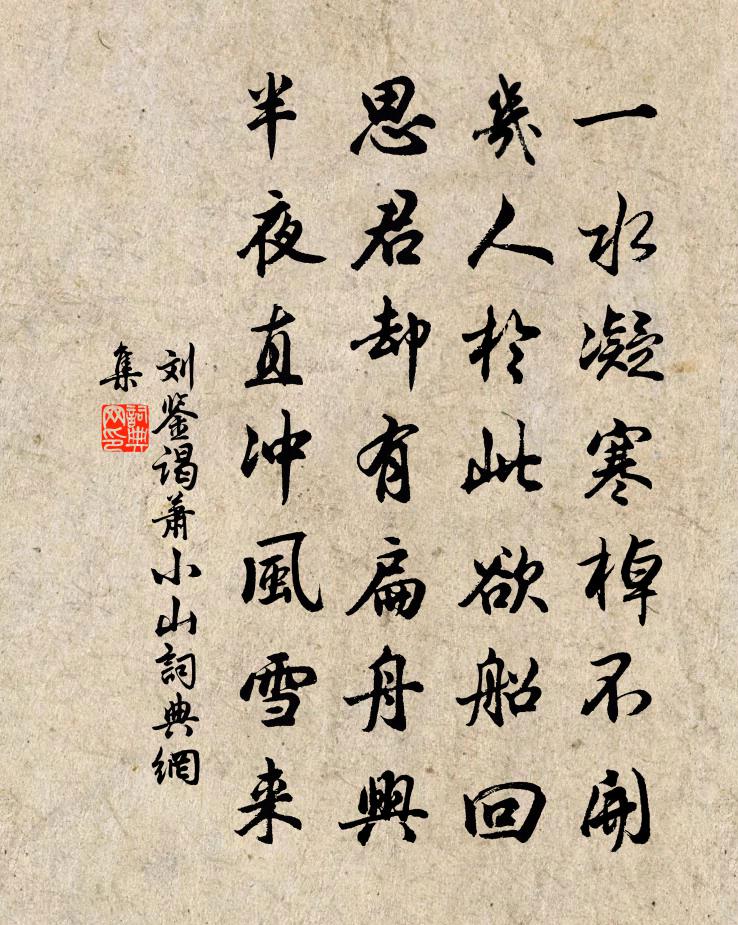 一水凝寒棹不開
幾人於此欲船回
思君却有扁舟興
半夜直冲風雪来
刘鉴谒蕭小山詞典網
集
詞典
网印